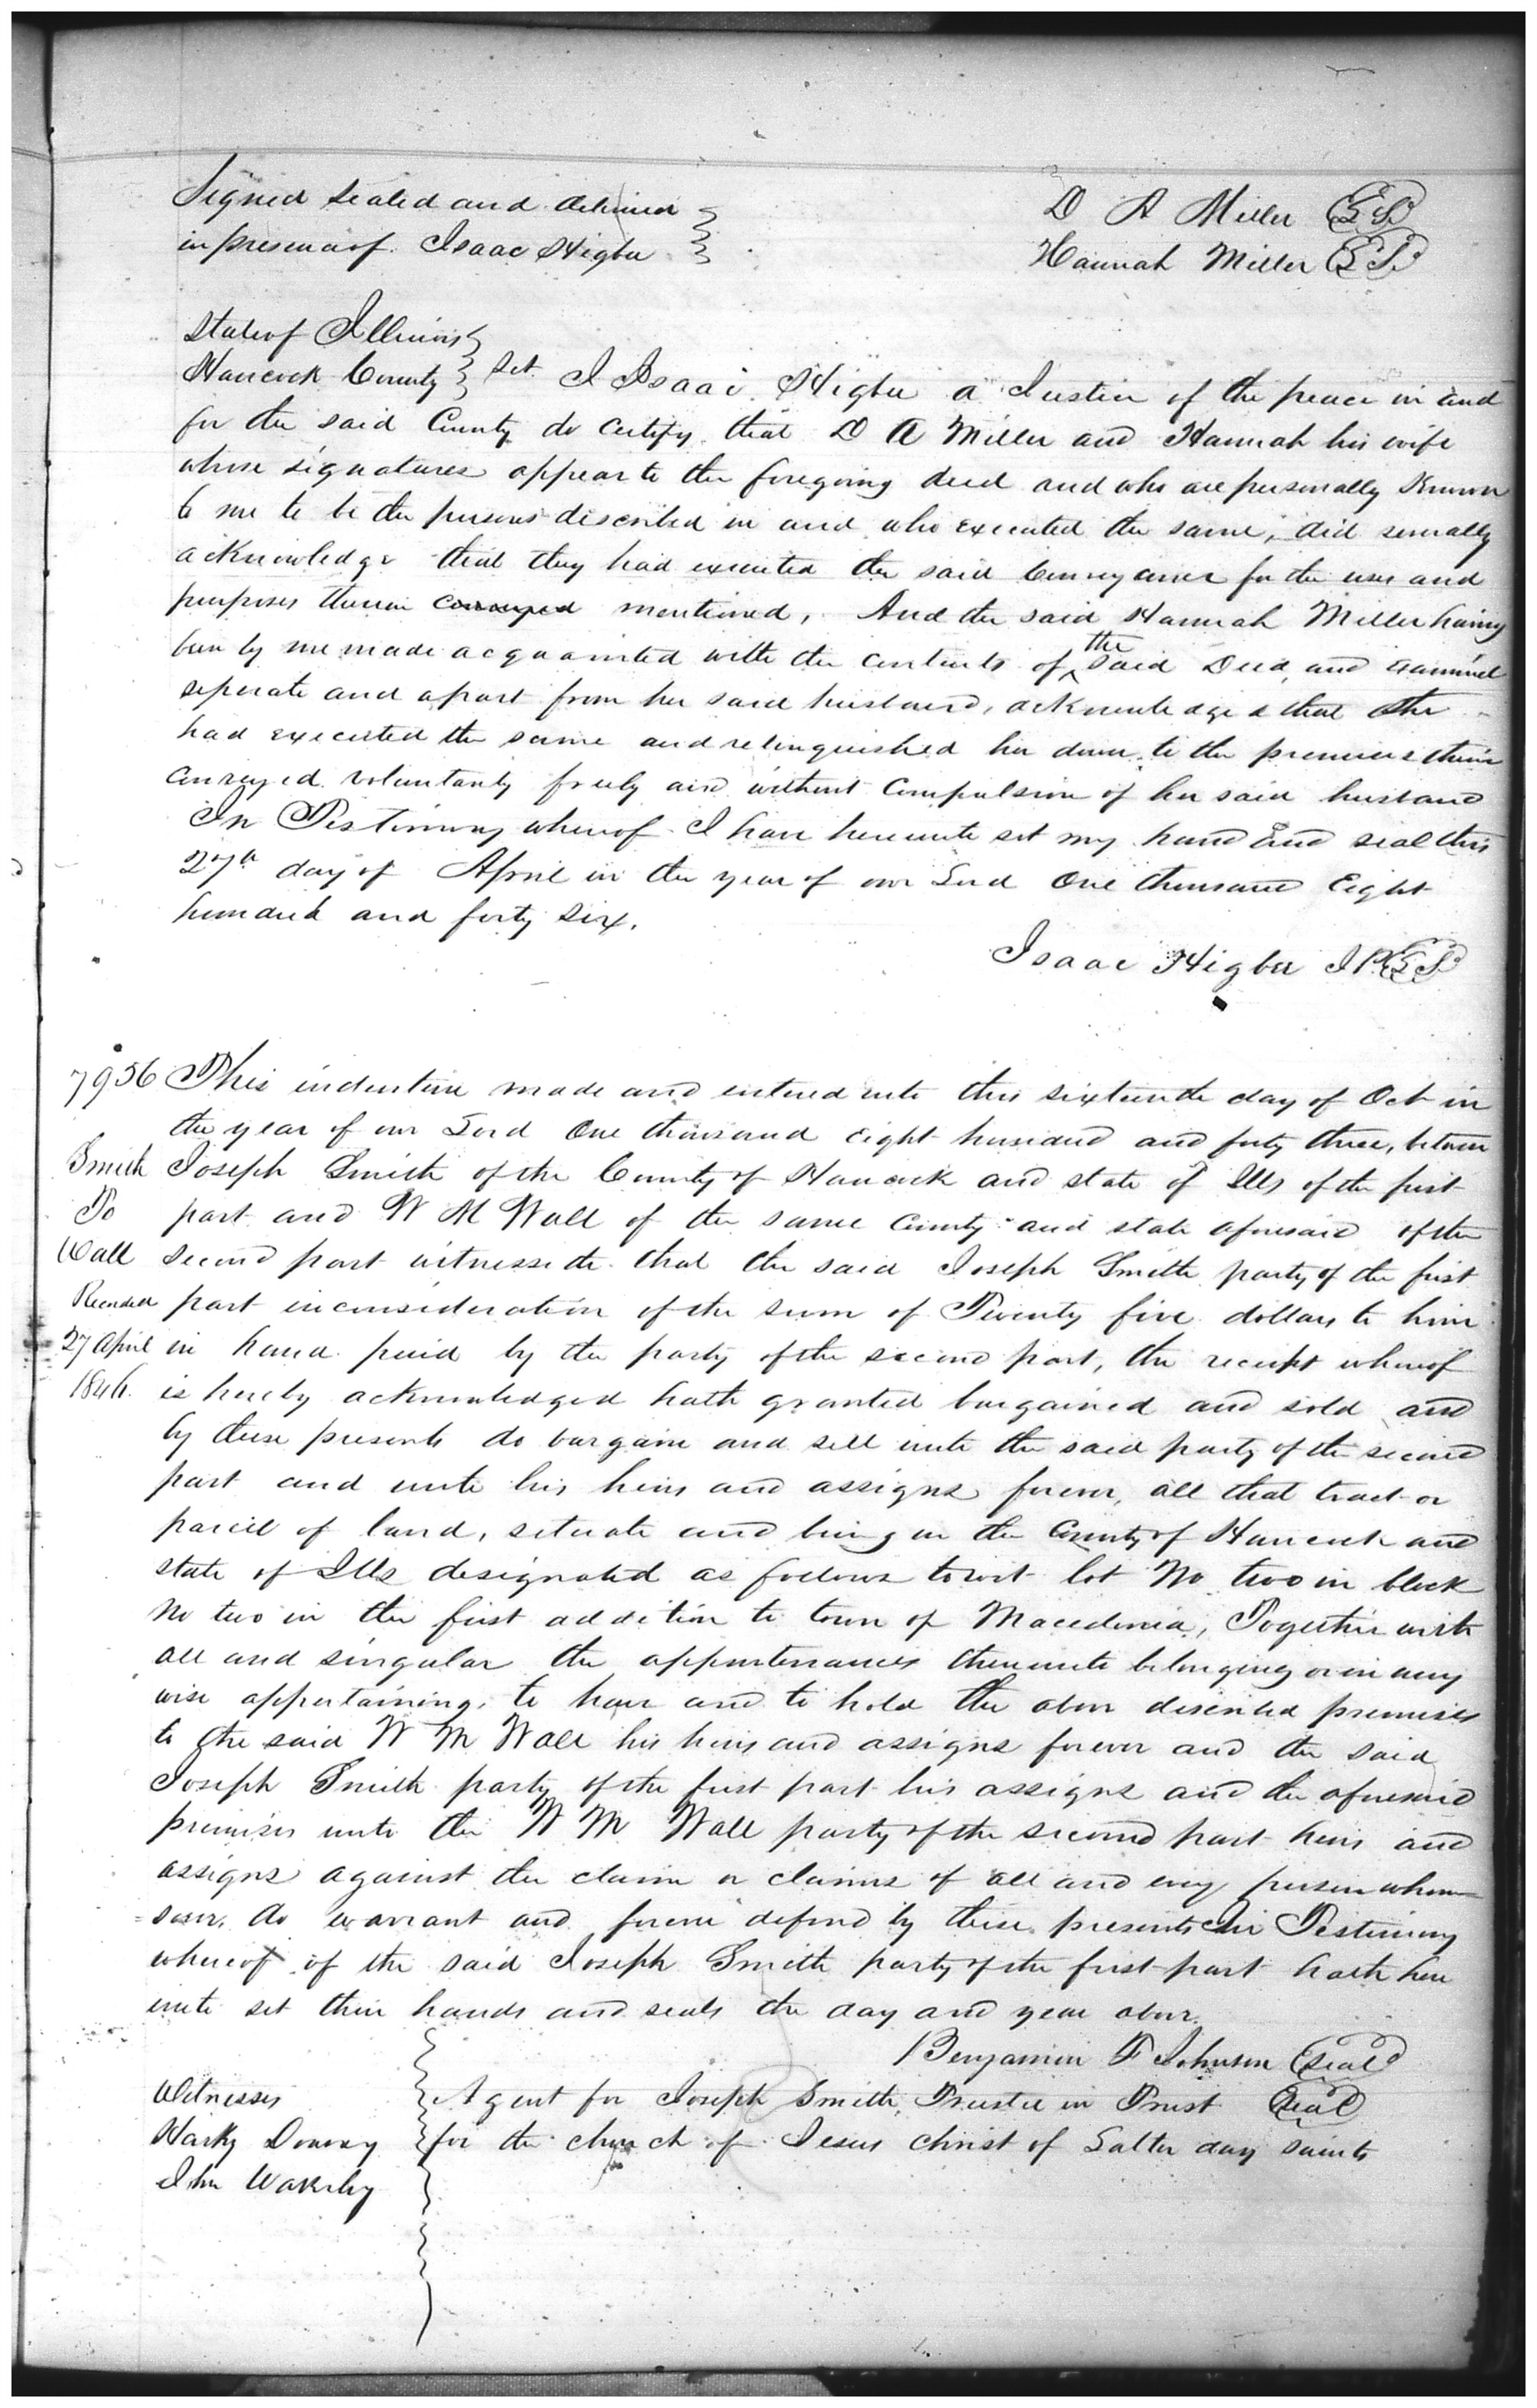 Signed Sealed and delivered
in presence of Isaac Higbee
D A Miller LS
Hannah Miller LS
State of Illinois
Hancock County Sct. I Isaac Higbee a Justice of the peace in and
for the said County do certify that D A Miller and Hannah his wife
whose signatures appear to the foregoing deed and who are personally Known
to me to be the persons described in and who executed the same, did severally
acknowledge that they had executed the said Conveyance for the uses and
purposes therein conveyed mentioned, And the said Hannah Miller having
been by me made acquainted with the contents of the said Deed, and examined
seperate and apart from her said husband, acknowledged that she
had executed the same and relinquished her dower to the premises therein
Conveyed voluntarily freely and without Compulsion of her said husband
In Testimony whereof I have hereunto set my hand and seal this
27th day of April in the year of our Lord One thousand Eight
hundred and forty six.
Isaac Higbee J P LS
7956 This indenture made and entered into this sixteenth day of Oct in
the year of our Lord One thousand eight hundred and forty three, between
Smith Joseph Smith of the County of Hancock and state of Ills of the first
To part and W M Wall of the same County and state aforesaid of the
Wall second part witnesseth that the said Joseph Smith party of the first
Recorded part inconsideration of the sum of Twenty five dollars to him
27 April in hand paid by the party of the second part, the receipt whereof
1846. is hereby acknowledged hath granted bargained and sold and
by these presents do bargain and sell unto the said party of the second
part and unto his heirs and assigns forever, all that tract or
parcel of land, situate and being in the County of Hancock and
state of Ills designated as follows towit lot No two in block
No two in the first addition to town of Macedonia, Together with
all and singular the appurtenances thereunto belonging or in any
wise appertaining, to have and to hold the above described premises
to the said W M Wall his heirs and assigns forever and the said
Joseph Smith party of the first part his assigns and the aforesaid
premises unto the W M Wall party of the second part heirs and
assigns against the claim or claims of all and every person whom
soever, do warrant and forever defend by these presents In Testimony
whereof of the said Joseph Smith party of the first part hath here
unto set their hands and seals the day and year above.
Benjamin F Johnson Seal
Witnesses Agent for Joseph Smith, Trustee in Trust Seal
for the church of Jesus Christ of Latter day saints
John